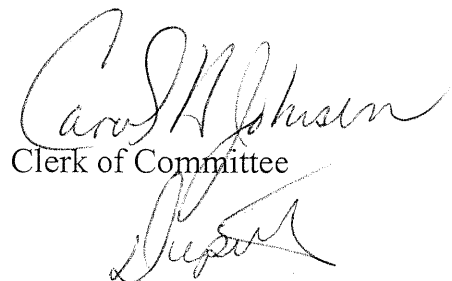 Carol H Johnson
Clerk of Committee